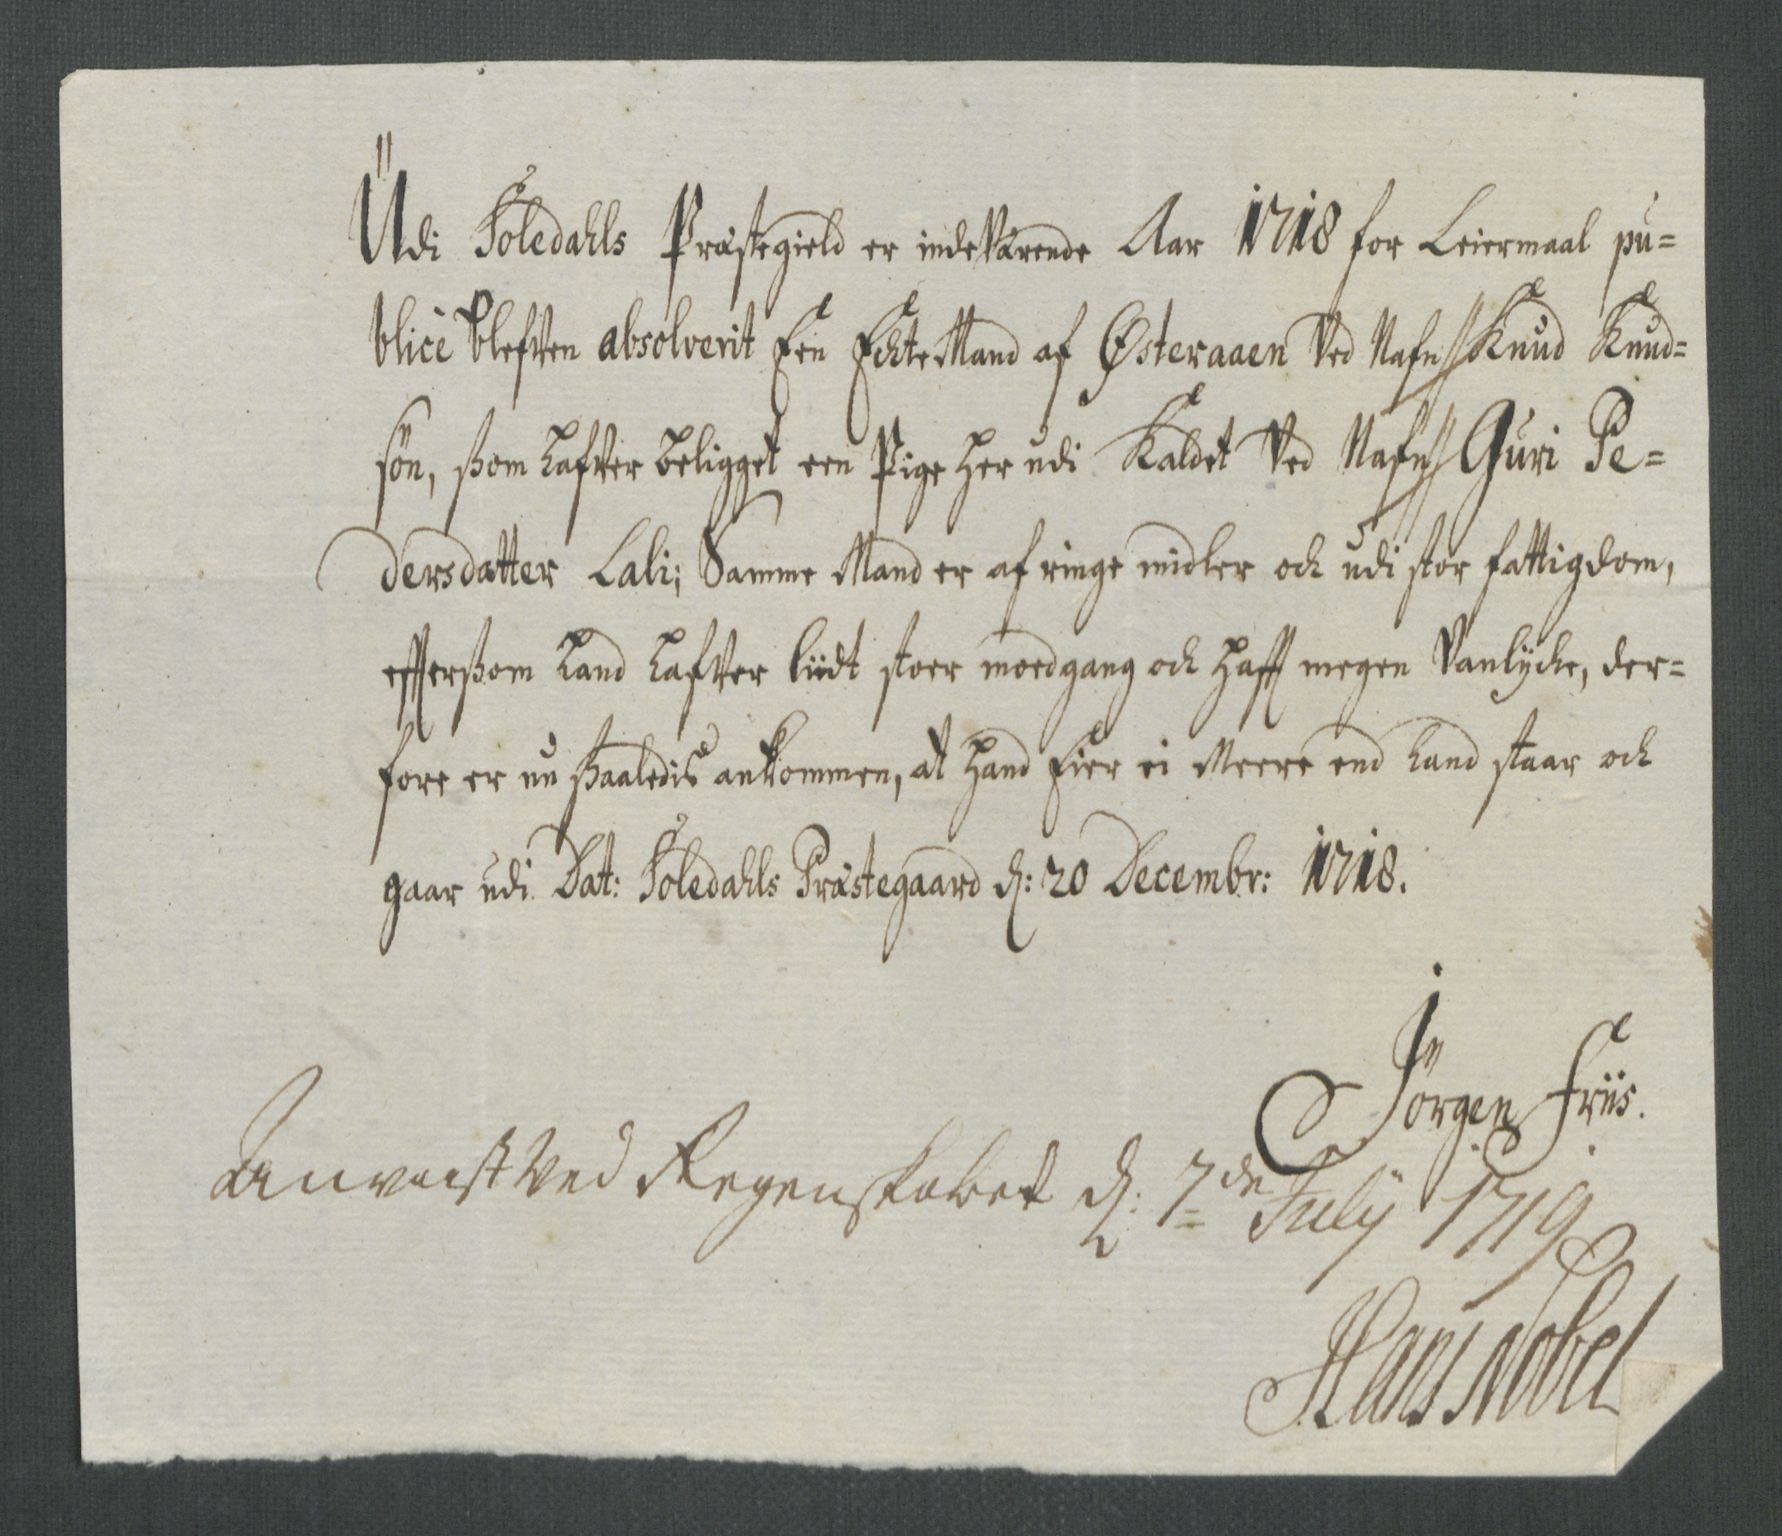 Udi Soledahls Præstegield er indeværende Aar 1718 for Leiermaal pu=
blicè blefven absolverit Een Echte Mand af Østeraaen ved Nafn // Knud Knud=
sön, ßom hafver beligget een Pige her udi Kaldet ved Nafn // Guri Pe=
dersdatter Lali; Samme Mand er af ringe midler och udi stor fattigdom,
efftersom hand hafver liidt stoer modgang och hafft megen Vanlycke, der=
fore er nu ßaaledis ankommen, at hand Eier ei Meere end hand staar och
gaar udi. Dat: Soledahls Præstegaard d: 20 Decembr: 1718.
Jörgen Friis.
Anvvist ved Regenskabet d: 7de July 1719
Hans Nobel